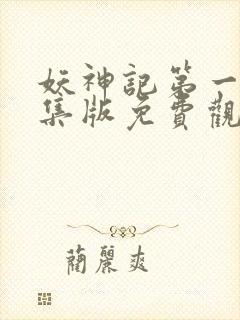 妖神記第一
集版免費觀
蘭麗爽